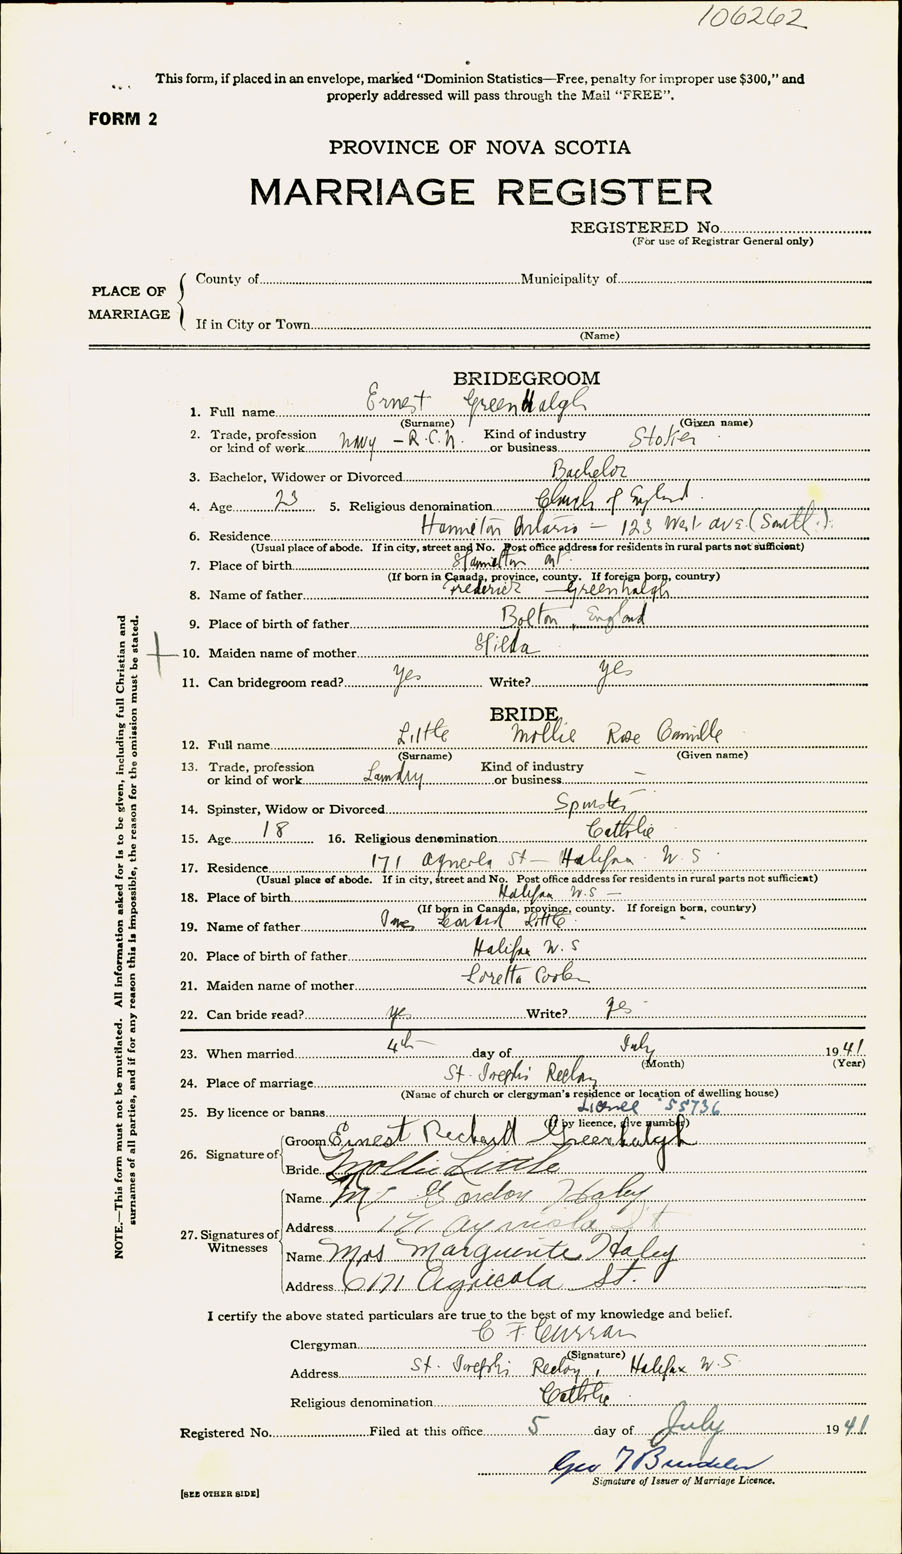 106262
This form, if placed in an envelope, marked "Dominion Statistics—Free, penalty for improper use $300," and
properly addressed will pass through the Mail "FREE".
FORM 2
PROVINCE OF NOVA SCOTIA
MARRIAGE REGISTER
REGISTERED No.
(For use of Registrar General only)
PLACE OF MARRIAGE
County of Municipality of
If in City or Town
(Name)
BRIDEGROOM
1. Full name Ernest GreenHalgh
(Surname) (Given name)
2. Trade, profession or kind of work Navy – R.C.N. Kind of industry or business Stoker
3. Bachelor, Widower or Divorced Bachelor
4. Age 23 5. Religious denomination Church of England
6. Residence Hamilton Ontario – 123 West ave (South)
(Usual place of abode. If in city, street and No. Post office address for residents in rural parts not sufficient)
7. Place of birth Hamilton ont
(If born in Canada, province, county. If foreign born, country)
8. Name of father Frederick Greenhalgh
9. Place of birth of father Bolton, England
10. Maiden name of mother Hilda
11. Can bridegroom read? yes Write? yes
BRIDE
12. Full name Little Mollie Rose Camille
(Surname) (Given name)
13. Trade, profession or kind of work Laundry Kind of industry or business –
14. Spinster, Widow or Divorced Spinster
15. Age 18 16. Religious denomination Catholic
17. Residence 171 Agricola St – Halifax N.S
(Usual place of abode. If in city, street and No. Post office address for residents in rural parts not sufficient)
18. Place of birth Halifax N.S –
(If born in Canada, province, county. If foreign born, country)
19. Name of father Little
20. Place of birth of father Halifax N.S
21. Maiden name of mother Loretta
22. Can bride read? yes Write? yes
23. When married 4th day of July 1941
(Month) (Year)
24. Place of marriage St. Joseph's Rectory
(Name of church or clergyman's residence or location of dwelling house)
25. By licence or banns License 55736
(If by licence, give number)
26. Signature of Groom Ernest Greenhalgh
Bride Mollie Little
27. Signatures of Witnesses
Name Mr Gordon Haley
Address 171 St
Name Mrs Marguerite Haley
Address 171 Agricola St.
I certify the above stated particulars are true to the best of my knowledge and belief.
Clergyman C F Curran
(Signature)
Address St. Joseph's Rectory, Halifax N.S.
Religious denomination Catholic
Registered No. Filed at this office 5 day of July 1941
Geo
Signature of Issuer of Marriage Licence.
[SEE OTHER SIDE]
NOTE.—This form must not be mutilated. All information asked for is to be given, including full Christian and
surnames of all parties, and if for any reason this is impossible, the reason for the omission must be stated.